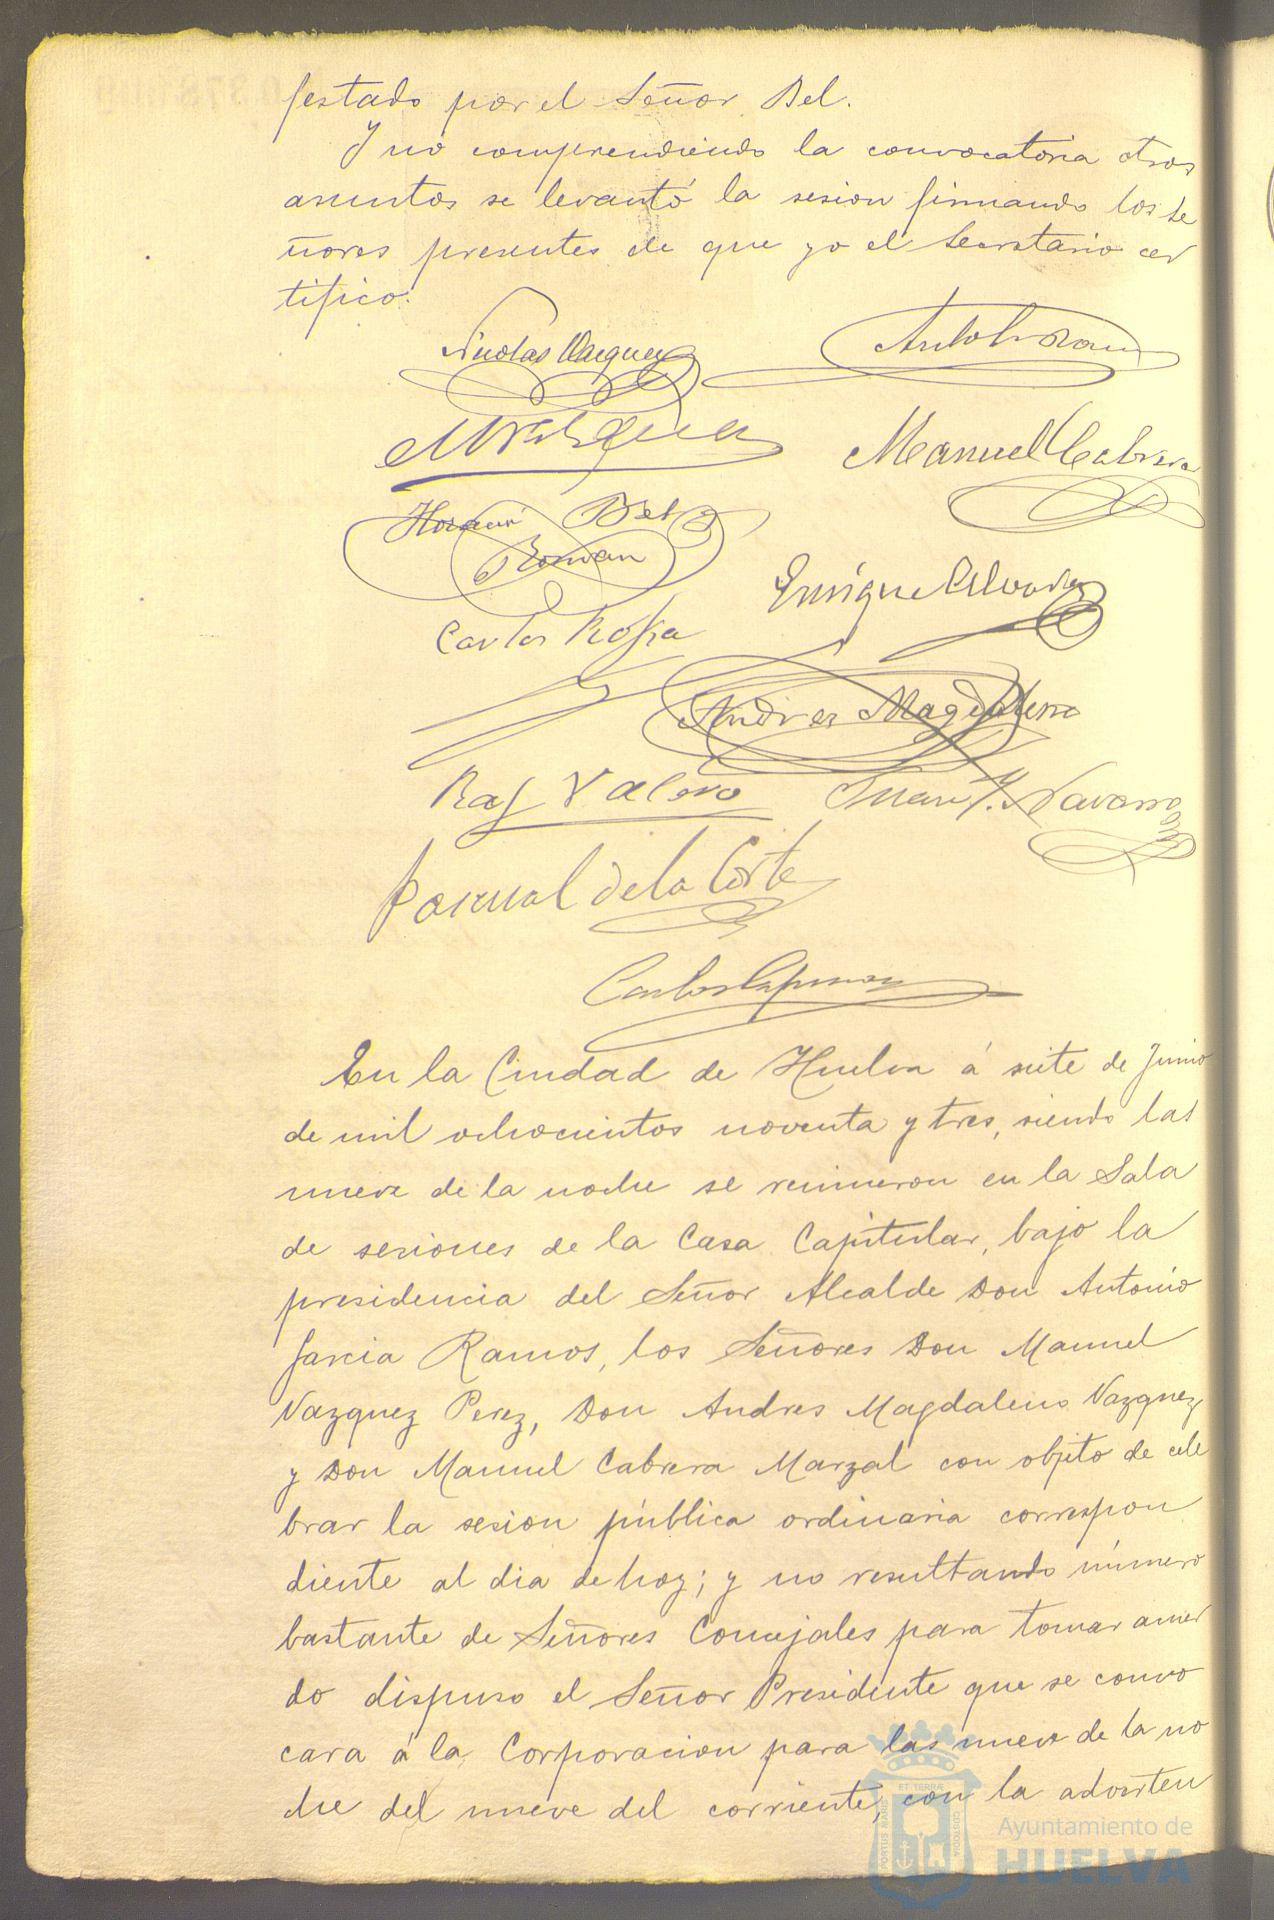 festado por el Señor Bel.
Y no comprendiendo la convocatoria otros
asuntos se levantó la sesion firmando los Se
ñores presentes de que yo el Secretario cer
tifico.
Nicolas Vazquez
M Vazquez
Manuel Cabrera
Horacio Bel
Roman
Enrique Alvarez
Carlos
Andres Magdaleno
Raf Valero Juan J. Navarro
Pascual de la Corte
Carlos Espinosa
En la Ciudad de Huelva á siete de Junio
de mil ochocientos noventa y tres, siendo las
nueve de la noche se reunieron en la Sala
de sesiones de la Casa Capitular, bajo la
presidencia del Señor Alcalde Don Antonio
Garcia Ramos, los Señores Don Manuel
Vazquez Perez, Don Andres Magdaleno Vazquez,
y Don Manuel Cabrera Marzal con objeto de cele
brar la sesion pública ordinaria correspon
diente al dia de hoy; y no resultando número
bastante de Señores Concejales para tomar acuer
do dispuso el Señor Presidente que se convo
cara á la Corporacion para las nueve de la no
che del nueve del corriente, con la adverten
PORTUS MARIS ET TERRÆ CUSTODIA
Ayuntamiento de
HUELVA